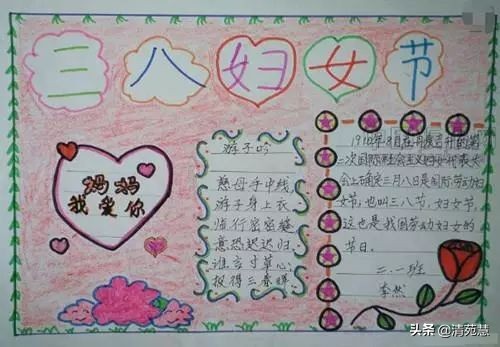 三八妇女节
妈妈
我爱你
游子吟
慈母手中线,
游子身上衣。
临行密密缝,
意恐迟迟归。
谁言寸草心,
报得三春晖。
1910年8月在丹麦召开的第
二次国际社会主义妇女代表大
会上确定三月八日是国际劳动妇
女节,也叫三八节,妇女节。
这也是我国劳动妇女的
节日。
二.一班
李然
头条@清苑慧